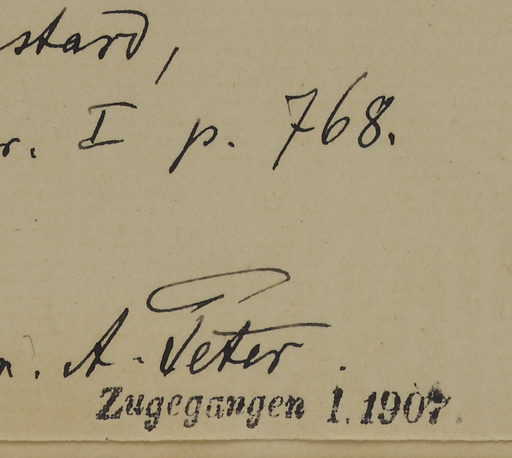 stard,
r. I p. 768.
n. A. Peter.
Zugegangen 1.1907